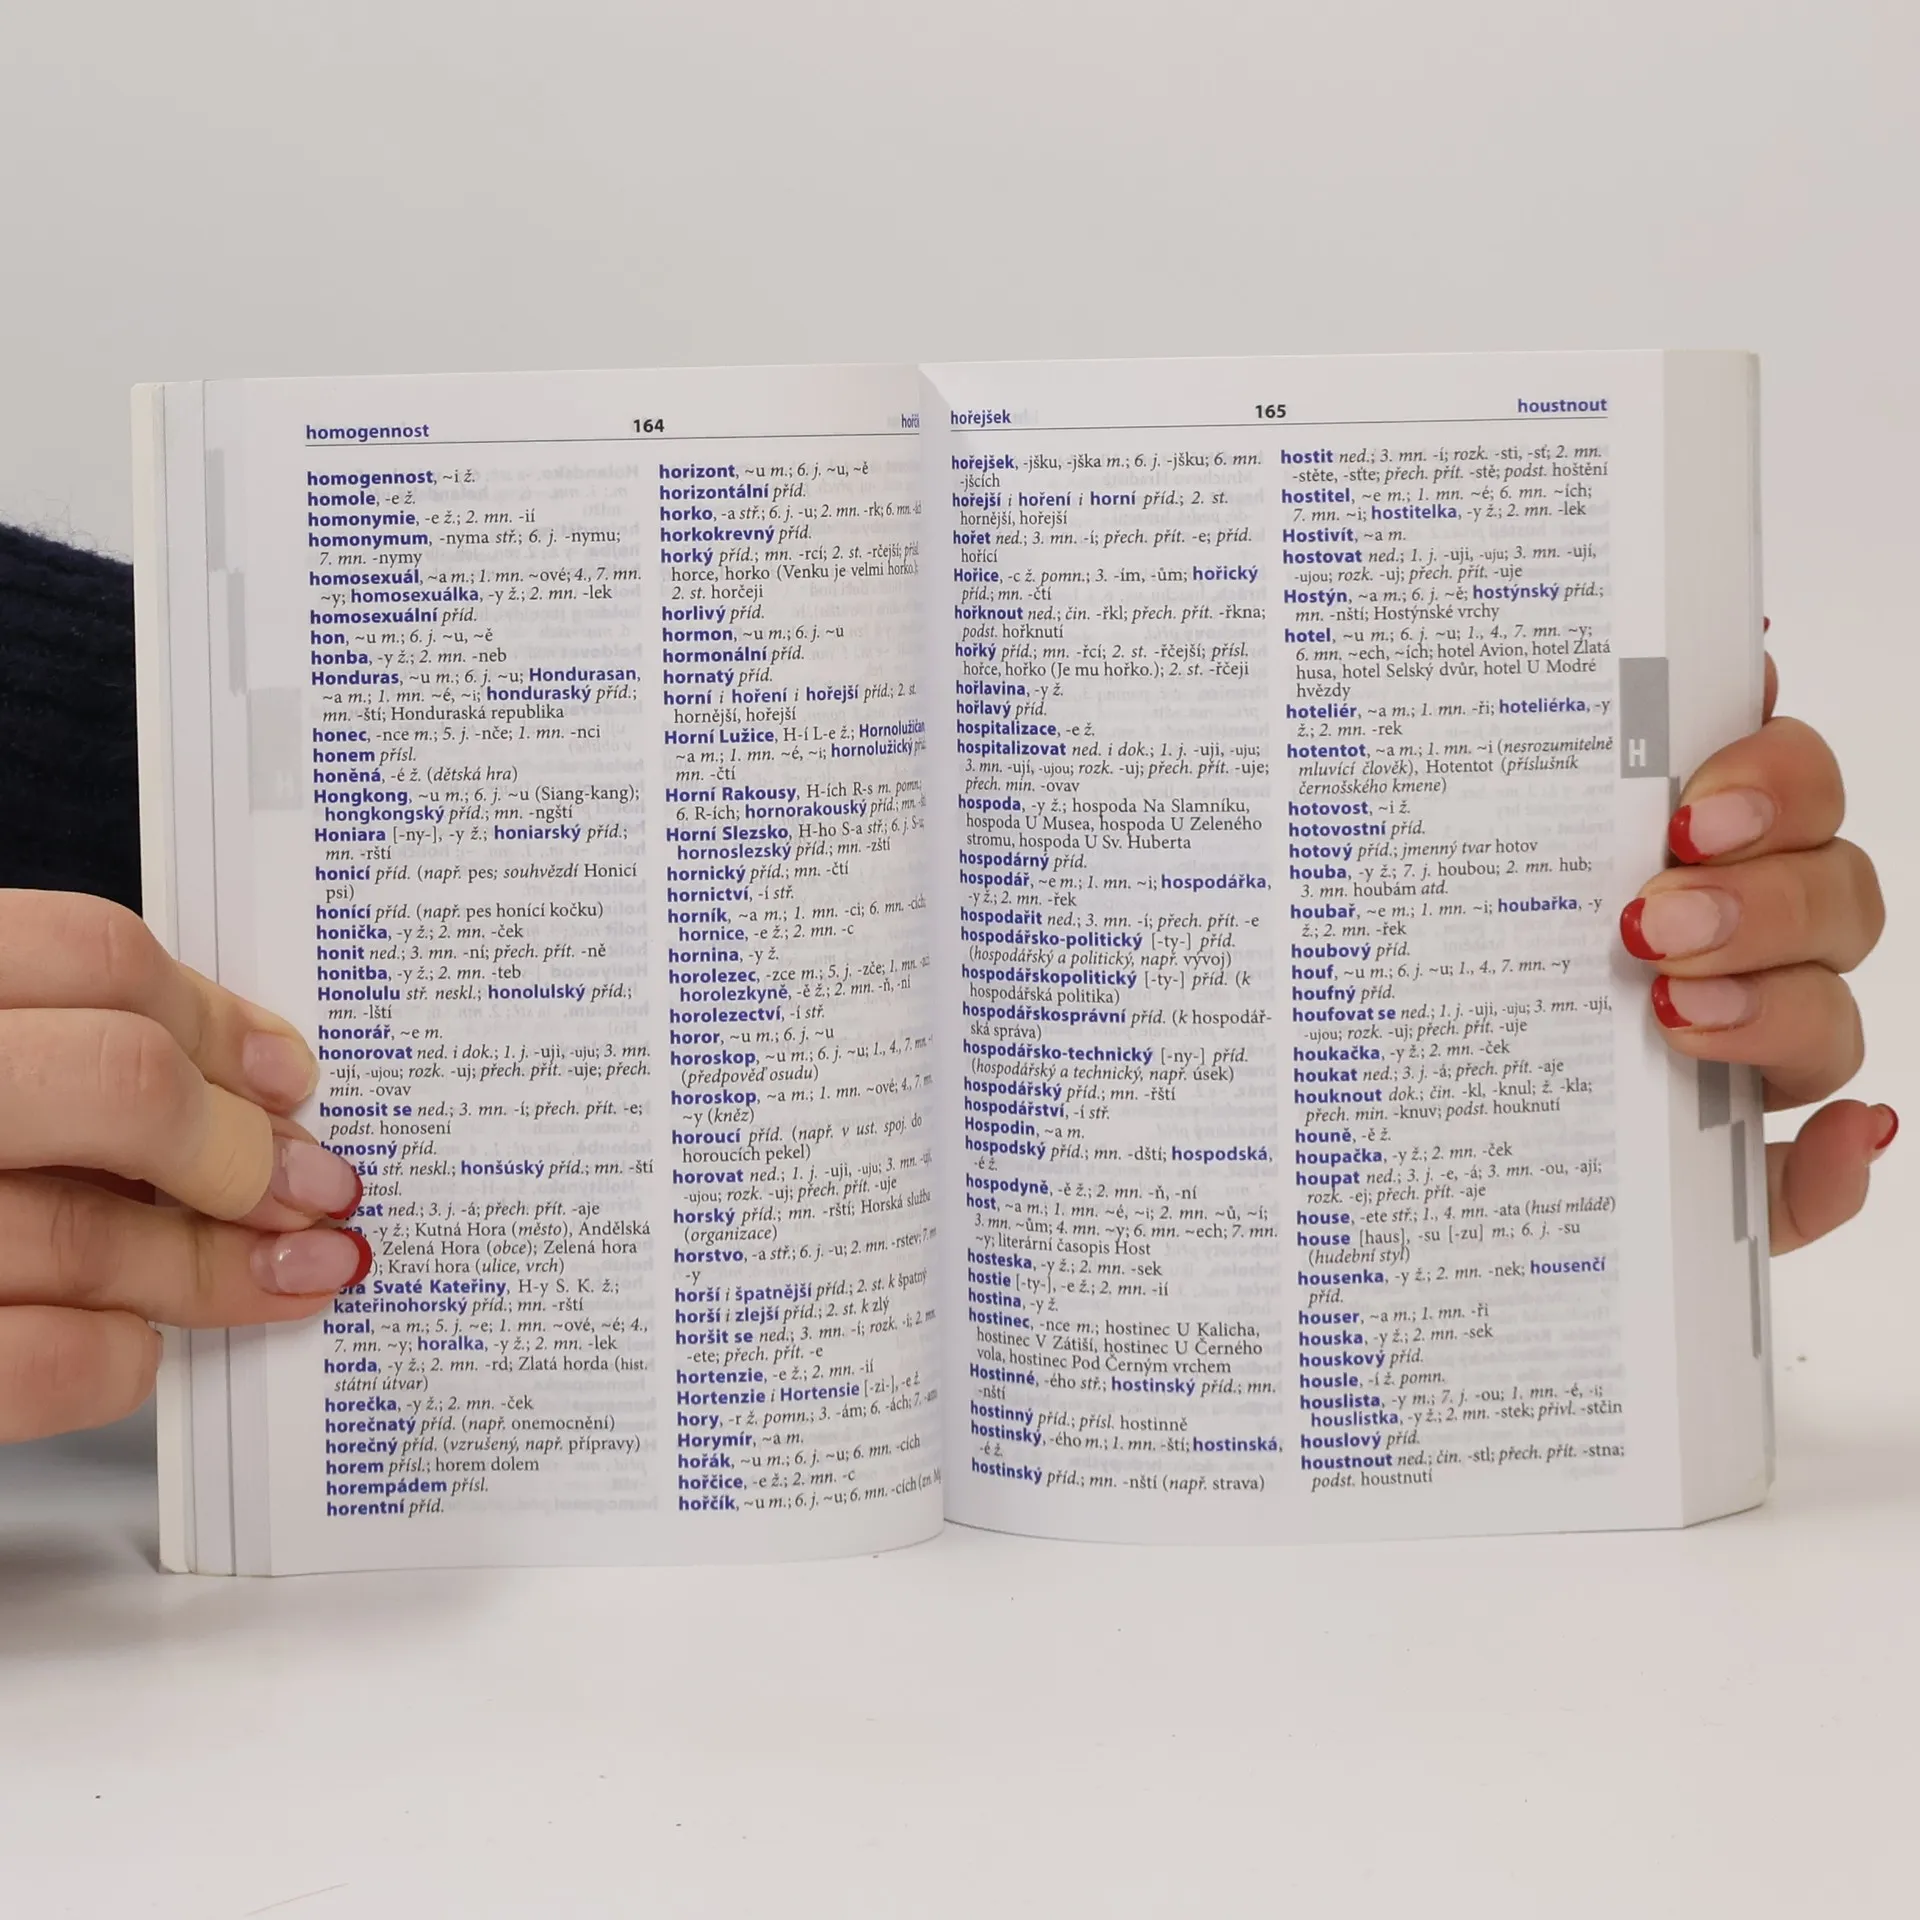 homogennost 164
homogennost, ~i ž.
homole, -e ž.
homonymie, -e ž.; 2. mn. -ií
homonymum, -nyma stř.; 6. j. -nymu;
7. mn. -nymy
homosexuál, ~a m.; 1. mn. ~ové; 4., 7. mn.
~y; homosexuálka, -y ž.; 2. mn. -lek
homosexuální příd.
hon, ~u m.; 6. j. ~u, ~ě
honba, -y ž.; 2. mn. -neb
Honduras, ~u m.; 6. j. ~u; Hondurasan,
~a m.; 1. mn. ~é, ~i; honduraský příd.;
mn. -ští; Honduraská republika
honec, -nce m.; 5. j. -nče; 1. mn. -nci
honem přísl.
honěná, -é ž. (dětská hra)
Hongkong, ~u m.; 6. j. ~u (Siang-kang);
hongkongský příd.; mn. -ngští
Honiara [-ny-], -y ž.; honiarský příd.;
mn. -rští
honicí příd. (např. pes; souhvězdí Honicí
psi)
honící příd. (např. pes honící kočku)
honička, -y ž.; 2. mn. -ček
honit ned.; 3. mn. -ní; přech. přít. -ně
honitba, -y ž.; 2. mn. -teb
Honolulu stř. neskl.; honolulský příd.;
mn. -lští
honorář, ~e m.
honorovat ned. i dok.; 1. j. -uji, -uju; 3. mn.
-ují, -ujou; rozk. -uj; přech. přít. -uje; přech.
min. -ovav
honosit se ned.; 3. mn. -í; přech. přít. -e;
podst. honosení
honosný příd.
stř. neskl.; honšúský příd.; mn. -ští
citosl.
ned.; 3. j. -á; přech. přít. -aje
-y ž.; Kutná Hora (město), Andělská
Zelená Hora (obce); Zelená hora
Kraví hora (ulice, vrch)
Svaté Kateřiny, H-y S. K. ž.;
kateřinohorský příd.; mn. -rští
horal, ~a m.; 5. j. ~e; 1. mn. ~ové, ~é; 4.,
7. mn. ~y; horalka, -y ž.; 2. mn. -lek
horda, -y ž.; 2. mn. -rd; Zlatá horda (hist.
státní útvar)
horečka, -y ž.; 2. mn. -ček
horečnatý příd. (např. onemocnění)
horečný příd. (vzrušený, např. přípravy)
horem přísl.; horem dolem
horempádem přísl.
horentní příd.
horizont, ~u m.; 6. j. ~u, ~ě
horizontální příd.
horko, -a stř.; 6. j. -u; 2. mn. -rk; 6. mn.
horkokrevný příd.
horký příd.; mn. -rcí; 2. st. -rčejší;
horce, horko (Venku je velmi horko.);
2. st. horčeji
horlivý příd.
hormon, ~u m.; 6. j. ~u
hormonální příd.
hornatý příd.
horní i hoření i hořejší příd.; 2. st.
hornější, hořejší
Horní Lužice, H-í L-e ž.; Hornolužičan,
~a m.; 1. mn. ~é, ~i; hornolužický
mn. -čtí
Horní Rakousy, H-ích R-s m. pomn.;
6. R-ích; hornorakouský příd.; mn.
Horní Slezsko, H-ho S-a stř.; 6. j. S-u;
hornoslezský příd.; mn. -zští
hornický příd.; mn. -čtí
hornictví, -í stř.
horník, ~a m.; 1. mn. -ci; 6. mn. -cích;
hornice, -e ž.; 2. mn. -c
hornina, -y ž.
horolezec, -zce m.; 5. j. -zče; 1. mn.
horolezkyně, -ě ž.; 2. mn. -ň, -ní
horolezectví, -í stř.
horor, ~u m.; 6. j. ~u
horoskop, ~u m.; 6. j. ~u; 1., 4., 7. mn.
(předpověď osudu)
horoskop, ~a m.; 1. mn. ~ové; 4., 7. mn.
~y (kněz)
horoucí příd. (např. v ust. spoj. do
horoucích pekel)
horovat ned.; 1. j. -uji, -uju; 3. mn. -ují,
-ujou; rozk. -uj; přech. přít. -uje
horský příd.; mn. -rští; Horská služba
(organizace)
horstvo, -a stř.; 6. j. -u; 2. mn. -rstev; 7. mn.
-y
horší i špatnější příd.; 2. st. k špatný
horší i zlejší příd.; 2. st. k zlý
horšit se ned.; 3. mn. -í; rozk. -i; 2. mn.
-ete; přech. přít. -e
hortenzie, -e ž.; 2. mn. -ií
Hortenzie i Hortensie [-zi-], -e ž.
hory, -r ž. pomn.; 3. -ám; 6. -ách; 7. -ami
Horymír, ~a m.
hořák, ~u m.; 6. j. ~u; 6. mn. -cích
hořčice, -e ž.; 2. mn. -c
hořčík, ~u m.; 6. j. ~u; 6. mn. -cích
hořejšek 165 houstnout
hořejšek, -jšku, -jška m.; 6. j. -jšku; 6. mn.
-jšcích
hořejší i hoření i horní příd.; 2. st.
hornější, hořejší
hořet ned.; 3. mn. -í; přech. přít. -e; příd.
hořící
Hořice, -c ž. pomn.; 3. -ím, -ům; hořický
příd.; mn. -čtí
hořknout ned.; čin. -řkl; přech. přít. -řkna;
podst. hořknutí
hořký příd.; mn. -řcí; 2. st. -řčejší; přísl.
hořce, hořko (Je mu hořko.); 2. st. -řčeji
hořlavina, -y ž.
hořlavý příd.
hospitalizace, -e ž.
hospitalizovat ned. i dok.; 1. j. -uji, -uju;
3. mn. -ují, -ujou; rozk. -uj; přech. přít. -uje;
přech. min. -ovav
hospoda, -y ž.; hospoda Na Slamníku,
hospoda U Musea, hospoda U Zeleného
stromu, hospoda U Sv. Huberta
hospodárný příd.
hospodář, ~e m.; 1. mn. ~i; hospodářka,
-y ž.; 2. mn. -řek
hospodařit ned.; 3. mn. -í; přech. přít. -e
hospodářsko-politický [-ty-] příd.
(hospodářský a politický, např. vývoj)
hospodářskopolitický [-ty-] příd. (k
hospodářská politika)
hospodářskosprávní příd. (k hospodář-
ská správa)
hospodářsko-technický [-ny-] příd.
(hospodářský a technický, např. úsek)
hospodářský příd.; mn. -řští
hospodářství, -í stř.
Hospodin, ~a m.
hospodský příd.; mn. -dští; hospodská,
-é ž.
hospodyně, -ě ž.; 2. mn. -ň, -ní
host, ~a m.; 1. mn. ~é, ~i; 2. mn. ~ů, ~í;
3. mn. ~ům; 4. mn. ~y; 6. mn. ~ech; 7. mn.
~y; literární časopis Host
hosteska, -y ž.; 2. mn. -sek
hostie [-ty-], -e ž.; 2. mn. -ií
hostina, -y ž.
hostinec, -nce m.; hostinec U Kalicha,
hostinec V Zátiší, hostinec U Černého
vola, hostinec Pod Černým vrchem
Hostinné, -ého stř.; hostinský příd.; mn.
-nští
hostinný příd.; přísl. hostinně
hostinský, -ého m.; 1. mn. -ští; hostinská,
-é ž.
hostinský příd.; mn. -nští (např. strava)
hostit ned.; 3. mn. -í; rozk. -sti, -sť; 2. mn.
-stěte, -sťte; přech. přít. -stě; podst. hoštění
hostitel, ~e m.; 1. mn. ~é; 6. mn. ~ích;
7. mn. ~i; hostitelka, -y ž.; 2. mn. -lek
Hostivít, ~a m.
hostovat ned.; 1. j. -uji, -uju; 3. mn. -ují,
-ujou; rozk. -uj; přech. přít. -uje
Hostýn, ~a m.; 6. j. ~ě; hostýnský příd.;
mn. -nští; Hostýnské vrchy
hotel, ~u m.; 6. j. ~u; 1., 4., 7. mn. ~y;
6. mn. ~ech, ~ích; hotel Avion, hotel Zlatá
husa, hotel Selský dvůr, hotel U Modré
hvězdy
hoteliér, ~a m.; 1. mn. -ři; hoteliérka, -y
ž.; 2. mn. -rek
hotentot, ~a m.; 1. mn. ~i (nesrozumitelně
mluvící člověk), Hotentot (příslušník
černošského kmene)
hotovost, ~i ž.
hotovostní příd.
hotový příd.; jmenný tvar hotov
houba, -y ž.; 7. j. houbou; 2. mn. hub;
3. mn. houbám atd.
houbař, ~e m.; 1. mn. ~i; houbařka, -y
ž.; 2. mn. -řek
houbový příd.
houf, ~u m.; 6. j. ~u; 1., 4., 7. mn. ~y
houfný příd.
houfovat se ned.; 1. j. -uji, -uju; 3. mn. -ují,
-ujou; rozk. -uj; přech. přít. -uje
houkačka, -y ž.; 2. mn. -ček
houkat ned.; 3. j. -á; přech. přít. -aje
houknout dok.; čin. -kl, -knul; ž. -kla;
přech. min. -knuv; podst. houknutí
houně, -ě ž.
houpačka, -y ž.; 2. mn. -ček
houpat ned.; 3. j. -e, -á; 3. mn. -ou, -ají;
rozk. -ej; přech. přít. -aje
house, -ete stř.; 1., 4. mn. -ata (husí mládě)
house [haus], -su [-zu] m.; 6. j. -su
(hudební styl)
housenka, -y ž.; 2. mn. -nek; housenčí
příd.
houser, ~a m.; 1. mn. -ři
houska, -y ž.; 2. mn. -sek
houskový příd.
housle, -í ž. pomn.
houslista, -y m.; 7. j. -ou; 1. mn. -é, -i;
houslistka, -y ž.; 2. mn. -stek; přivl. -stčin
houslový příd.
houstnout ned.; čin. -stl; přech. přít. -stna;
podst. houstnutí
H